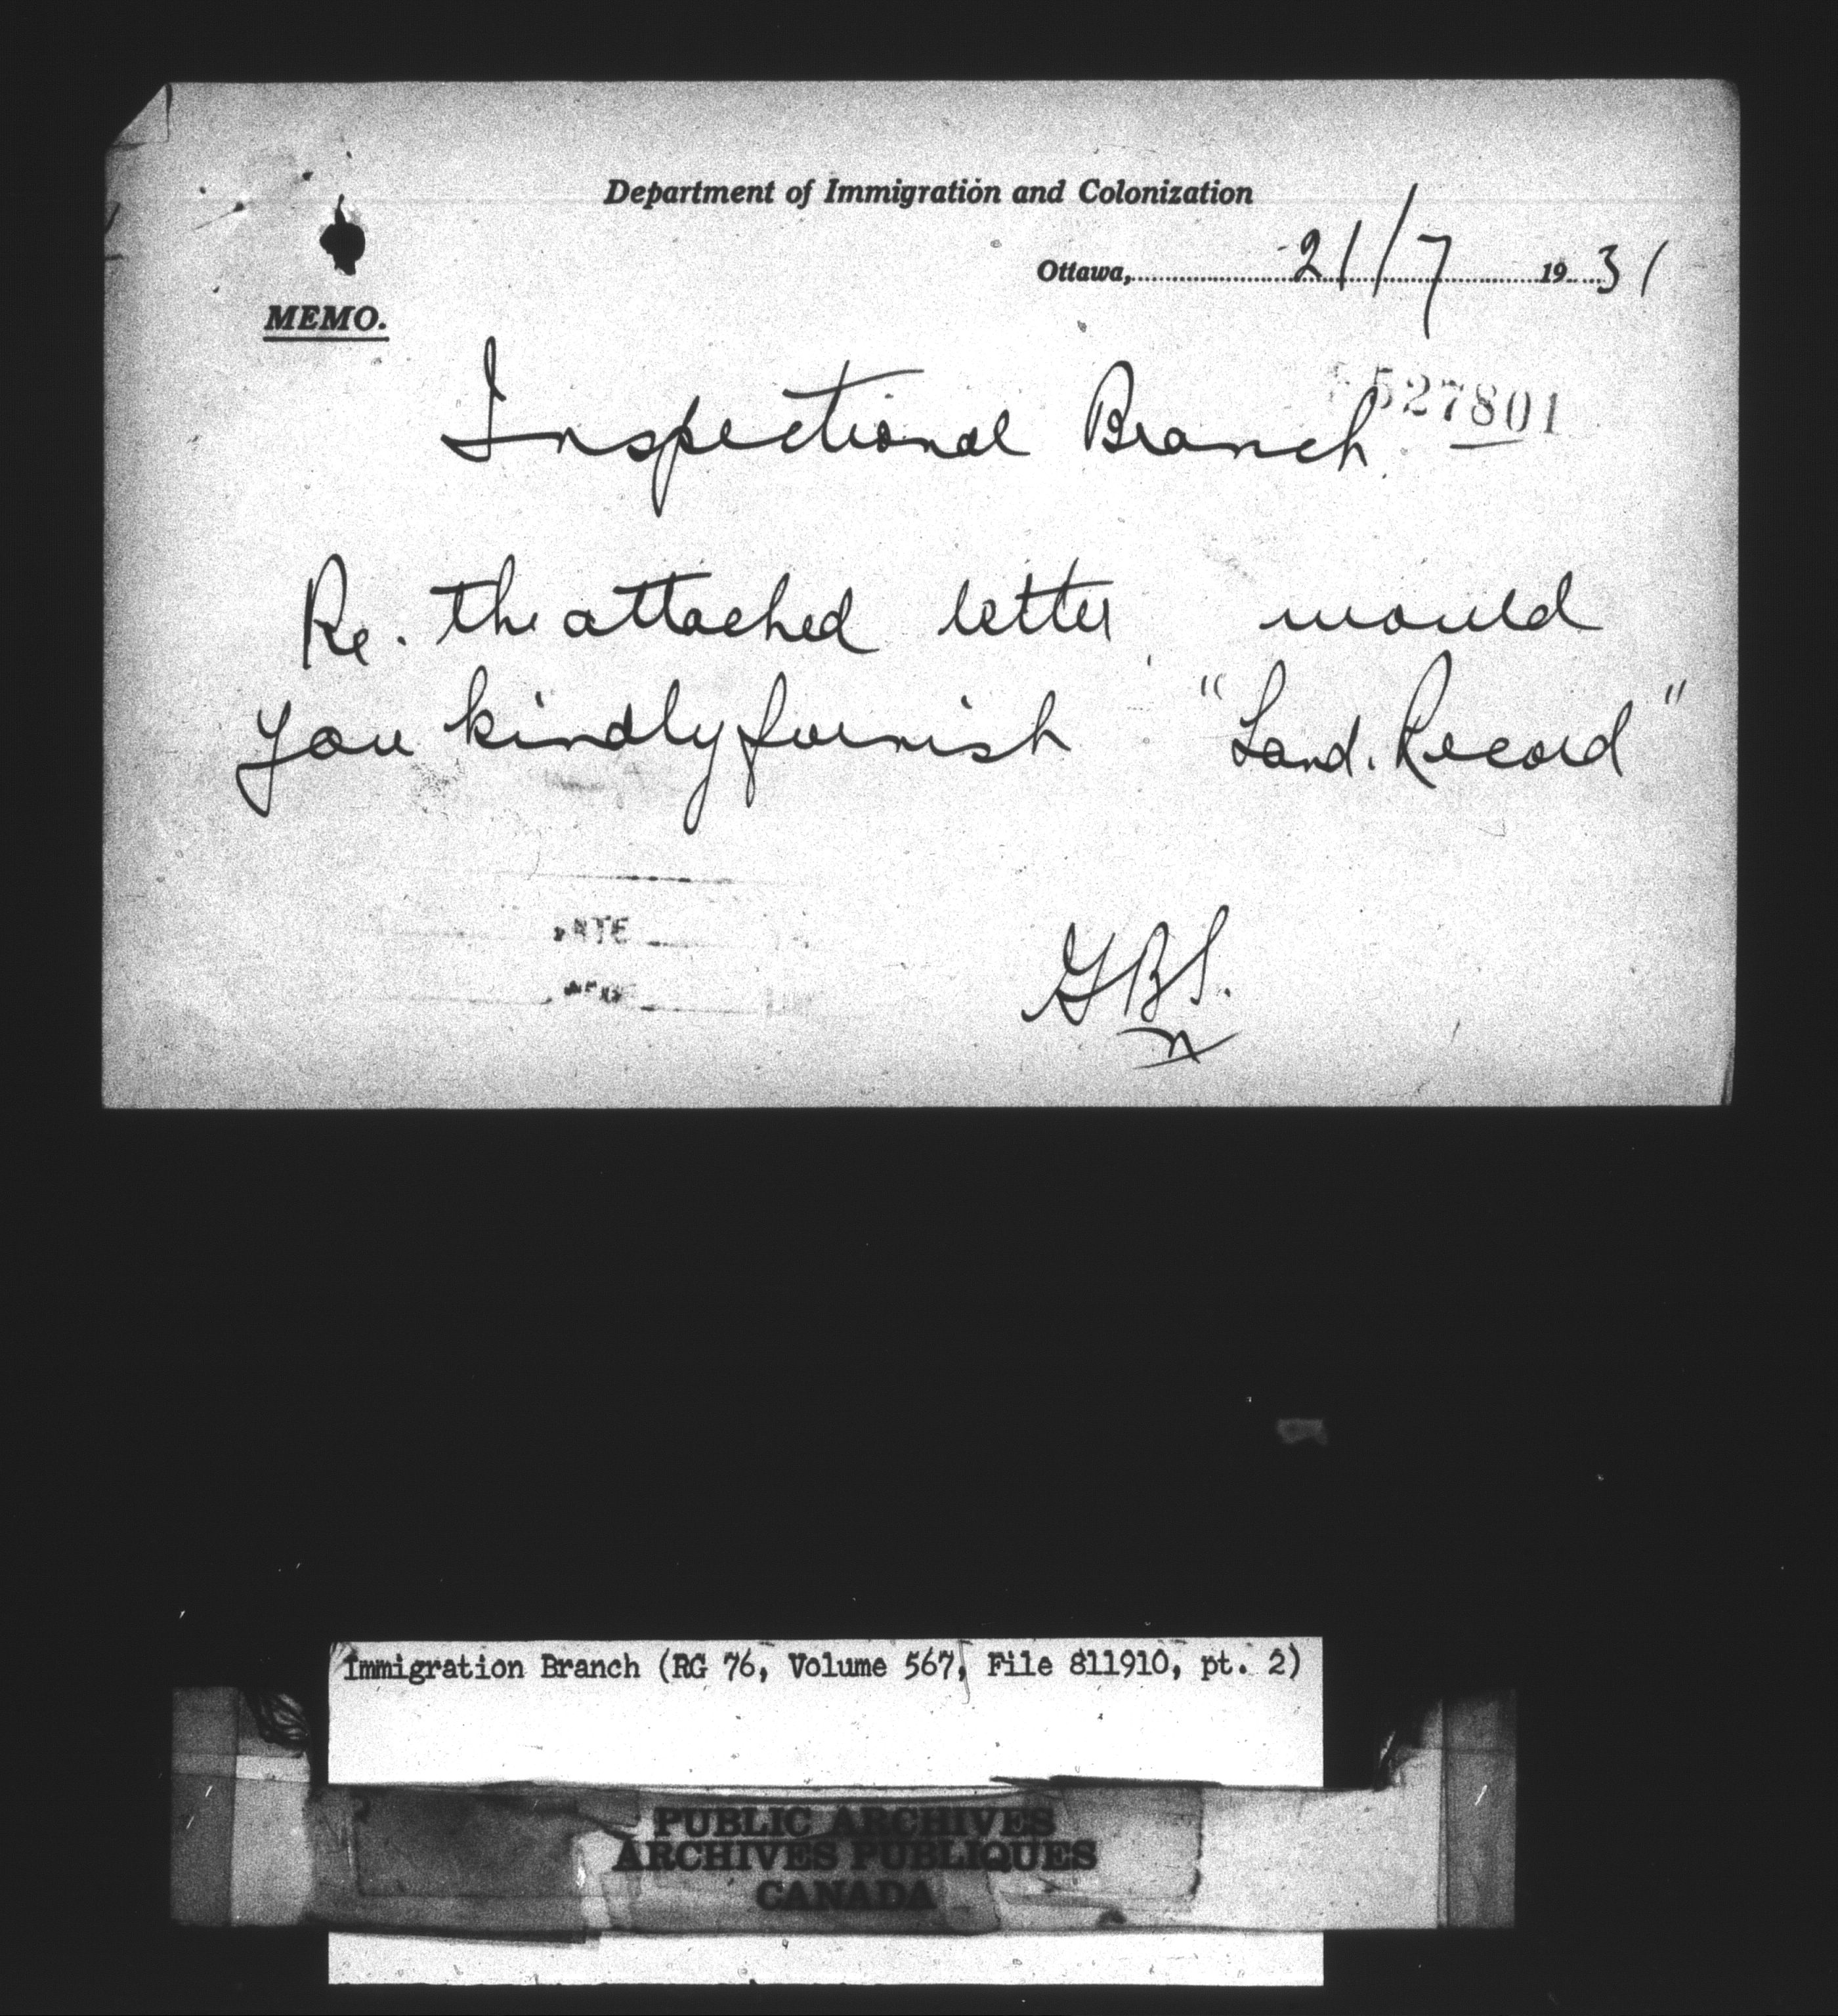 Department of Immigration and Colonization
Ottawa, 21/7 1931
MEMO.
527801
Inspectional Branch
Re. the attached letter would
you kindly furnish "Land. Record"
GBS.
Immigration Branch (RG 76, Volume 567, File 811910, pt. 2)
PUBLIC ARCHIVES
ARCHIVES PUBLIQUES
CANADA